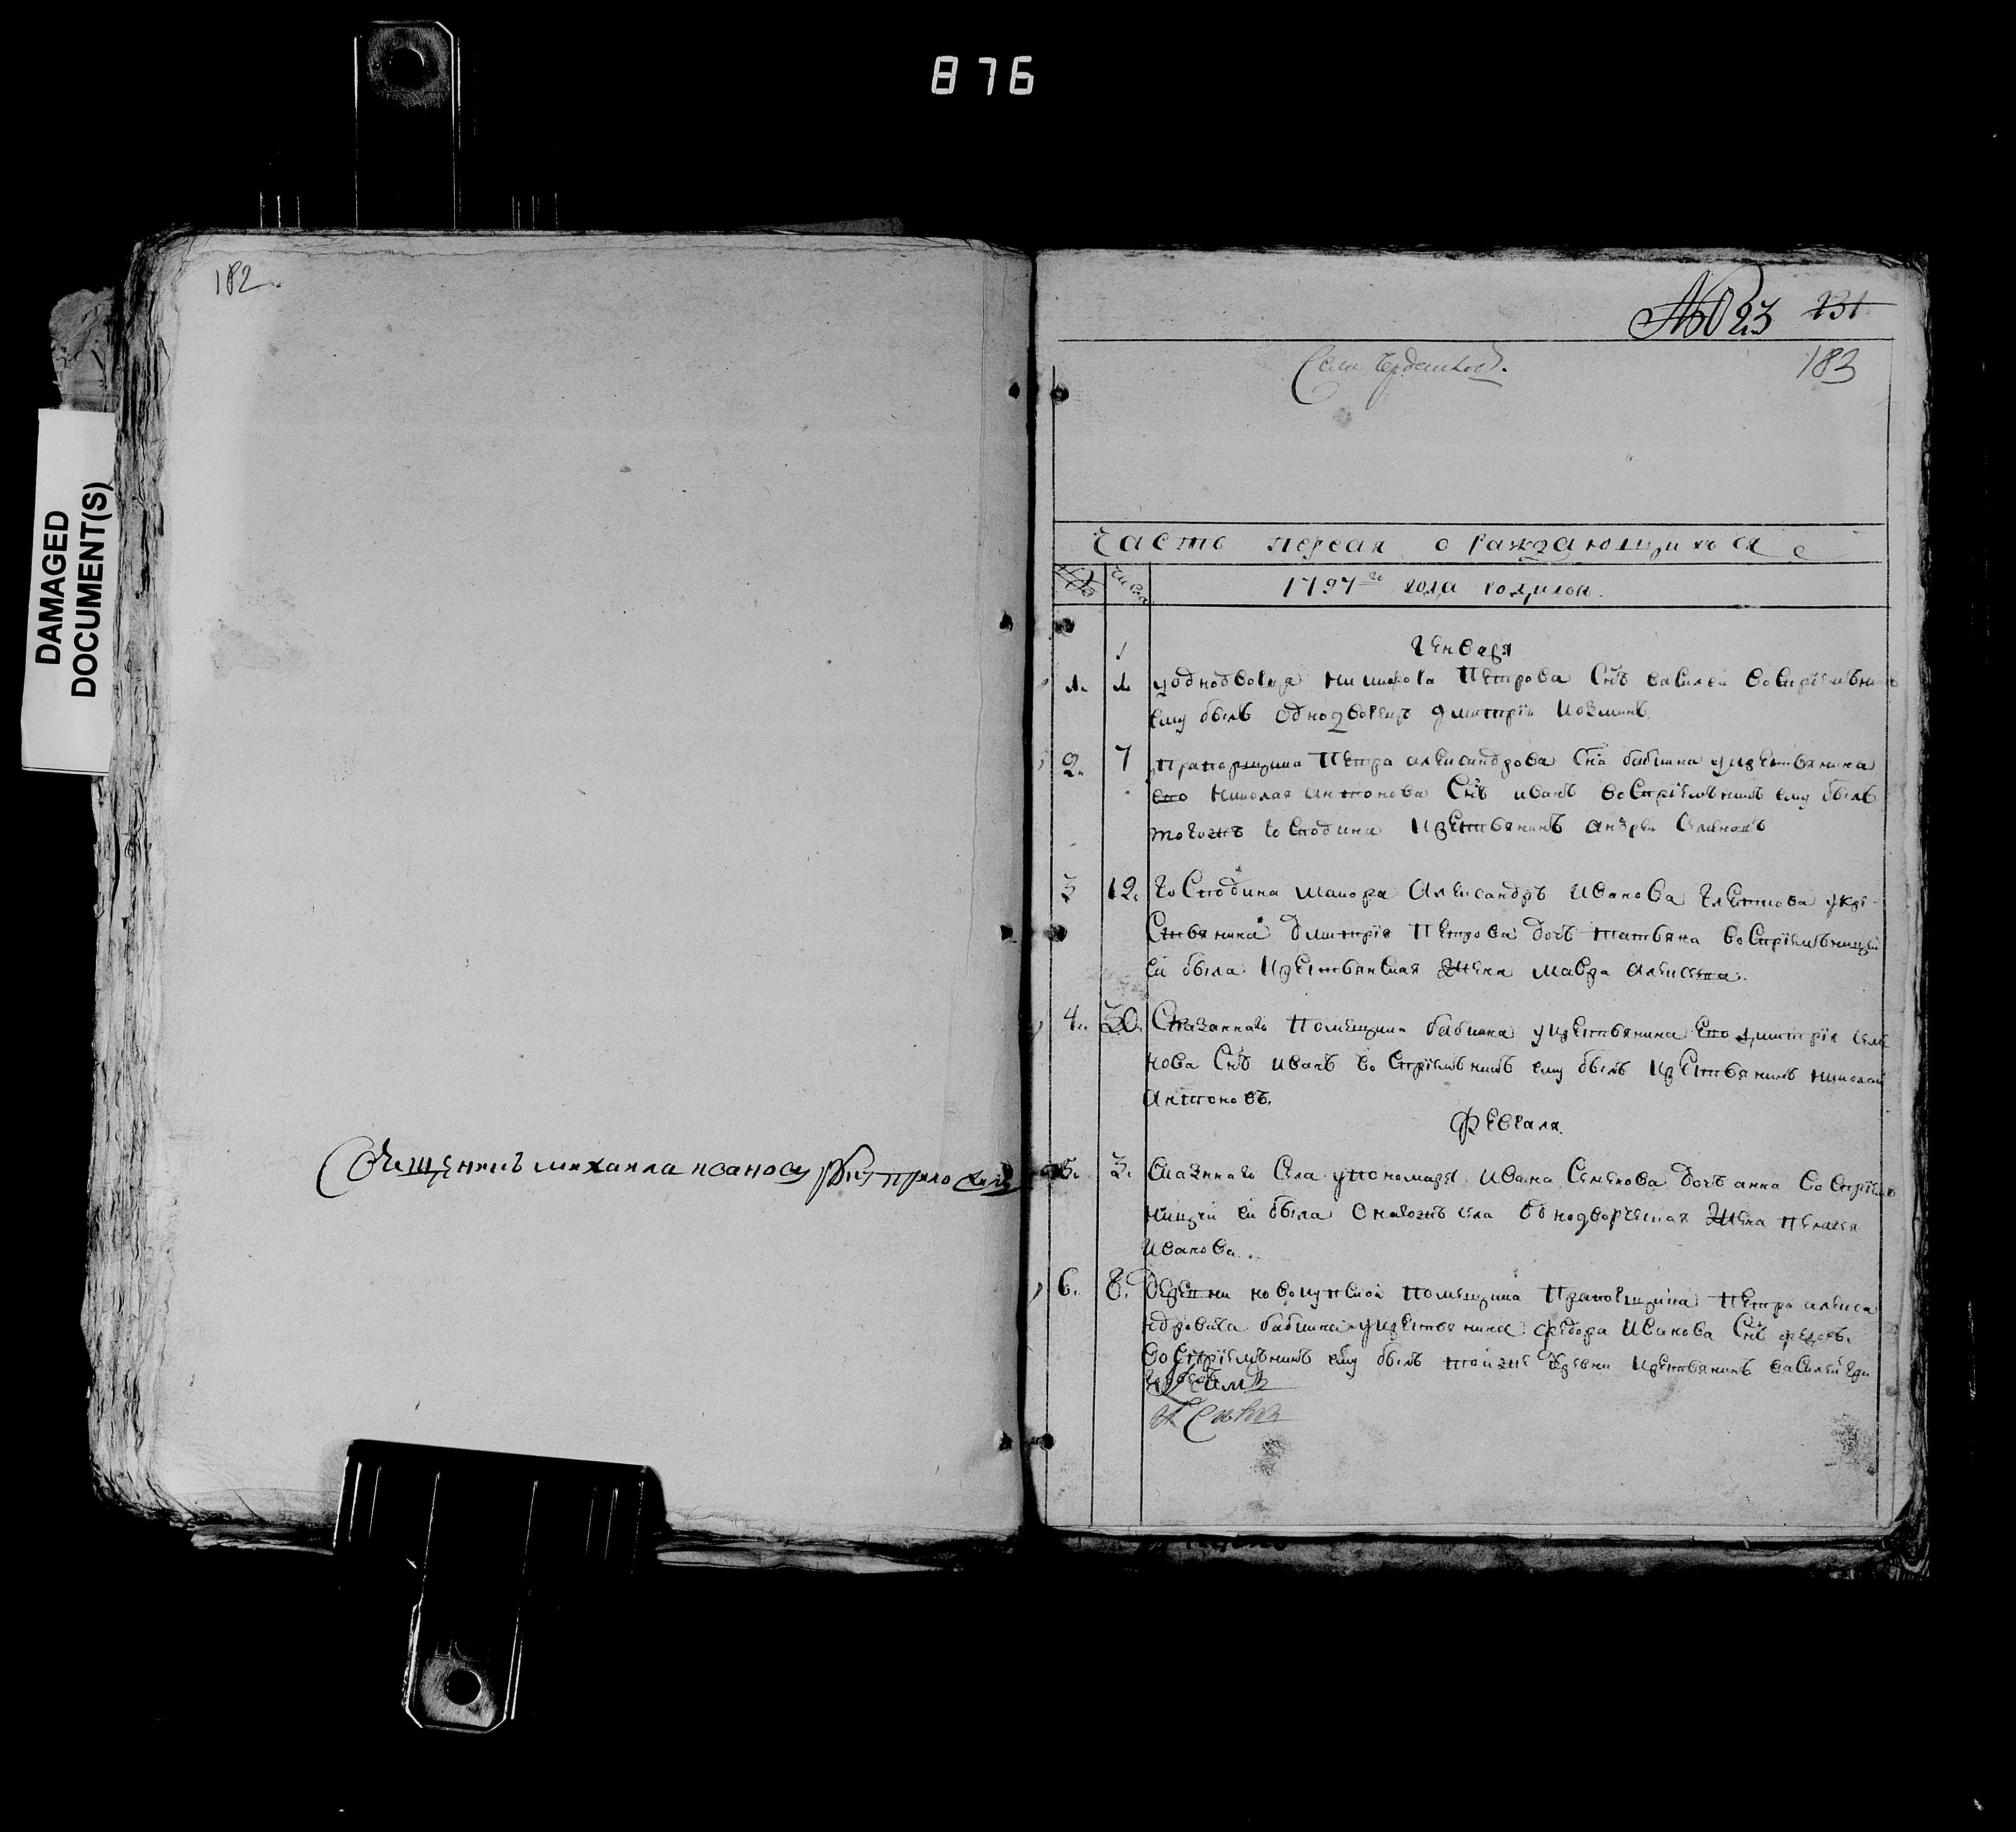 876
182
DAMAGED
DOCUMENT(S)
Священникъ михаила ивановъ руку приложилъ
№ 23 131
183
Села
Часть первая о раждающихся
№ числа 1797го года родился
Генваря
1. 1. у однодворца Петрова Снъ василеи воспрiемъникъ
ему былъ однодворецъ дмитрiи Козминъ
2. 7 прапорщика Петра александрова Сна бабкина укрестьянина
ево николая антонова Снъ иванъ воспрiемъникъ ему былъ
тогожъ Господина крестьянинъ андреи Семеновъ
3 12. Господина маиора Александръ Иванова укре
стьянина дмитрiя Петрова дочь татьяна воспрiемъницеи
еи была крестьянская жена мавра
4. 30. Сказаннаго Помещика бабкина укрестьянина Ево дмитрiя семе
нова Снъ иванъ воспрiемъникъ ему былъ крестьянинъ николаи
Антоновъ.
Февраля
5. 3. Сказаннаго Села упономаря Ивана Семенова дочь анна воспрiемъ
ницеи еи была села однодворческая жена пелагея
Иванова.
6. 8. Деревни помещика Прапорщика Петра алекса
ндровича бабкина укрестьянина федора Иванова Снъ федоръ
воспрiемъникъ ему былъ тоиже деревни крестьянинъ василеи